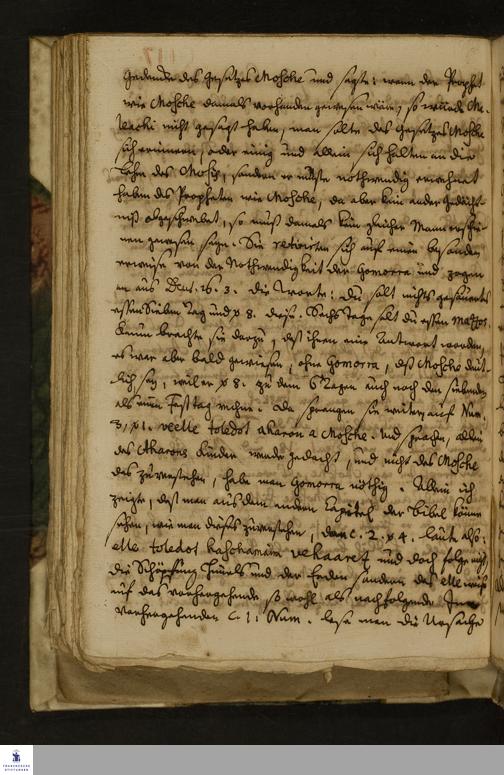 gedenken des Gesetzes Mosche und sagte: wenn der Prophet
wie Mosche damals vorhanden gewesen wäre, so würde Ma-
leachi nicht gesagt haben, man solte des Gesetzes Mosche
sich erinnern, oder einig und allein sich halten an die
Lehre des Mosis, sondern er müste nothwendig erwehnet
haben des Propheten wie Mosche, da aber kein ander Gedächt-
niß obgeschwebet, so muß damals kein gleicher Mann erschie-
nen gewesen seyn. Sie retirirten sich auf einen besondern
erweise von der Nothwendigkeit der Gomorra und zogen
an aus Deut. 16. 3. die Worte: Du solt nichts gesäuertes
essen Sieben Tag und ỹ 8. heist. Sechs Tage solt du essen Mazzos.
kaum brachte sie darzu, daß ihnen eine Antwort worden,
es war aber bald gewiesen, ohne Gomorra, daß Mosche deut-
lich sey, weil er ỹ 8. zu den 6 Tagen auch noch den siebenden
als einen Fest tag rechne. Da sprangen sie weiter auf Num.
3, ỹ 1. veelle toledot aharon u Mosche. und sprachen, allein
des Aharons Kinder werde gedacht, und nicht des Mosche
das zu verstehen, habe man Gomorra nöthig. Allein ich
zeigte, daß man aus dem andern Capitel der Bibel könne
sehen, wie man dieses zu verstehen, dan c. 2. ỹ 4. laute also:
elle toledot haschamaim vehaaretz und doch folge nicht
die Schöpfung Himels und der Erden sondern das elle weise
auf das vorhergehende so wohl als nachfolgende. Im
vorhergehenden C. 1. Num. lese man die Ursache
FRANCKESCHE
STIFTUNGEN